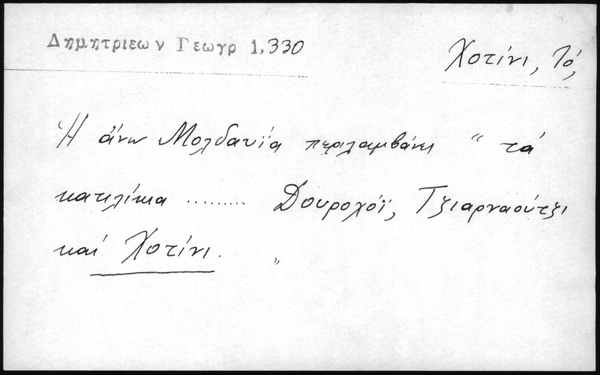 Δημητριεων Γεωγρ 1,330
Χοτίνι, Τό,
Ἡ ἄνω Μολδαυΐα περιλαμβάνει " τά
κατιλίκια ......... Δουροχόϊ, Τζιαρναούτζι
καί Χοτίνι. "